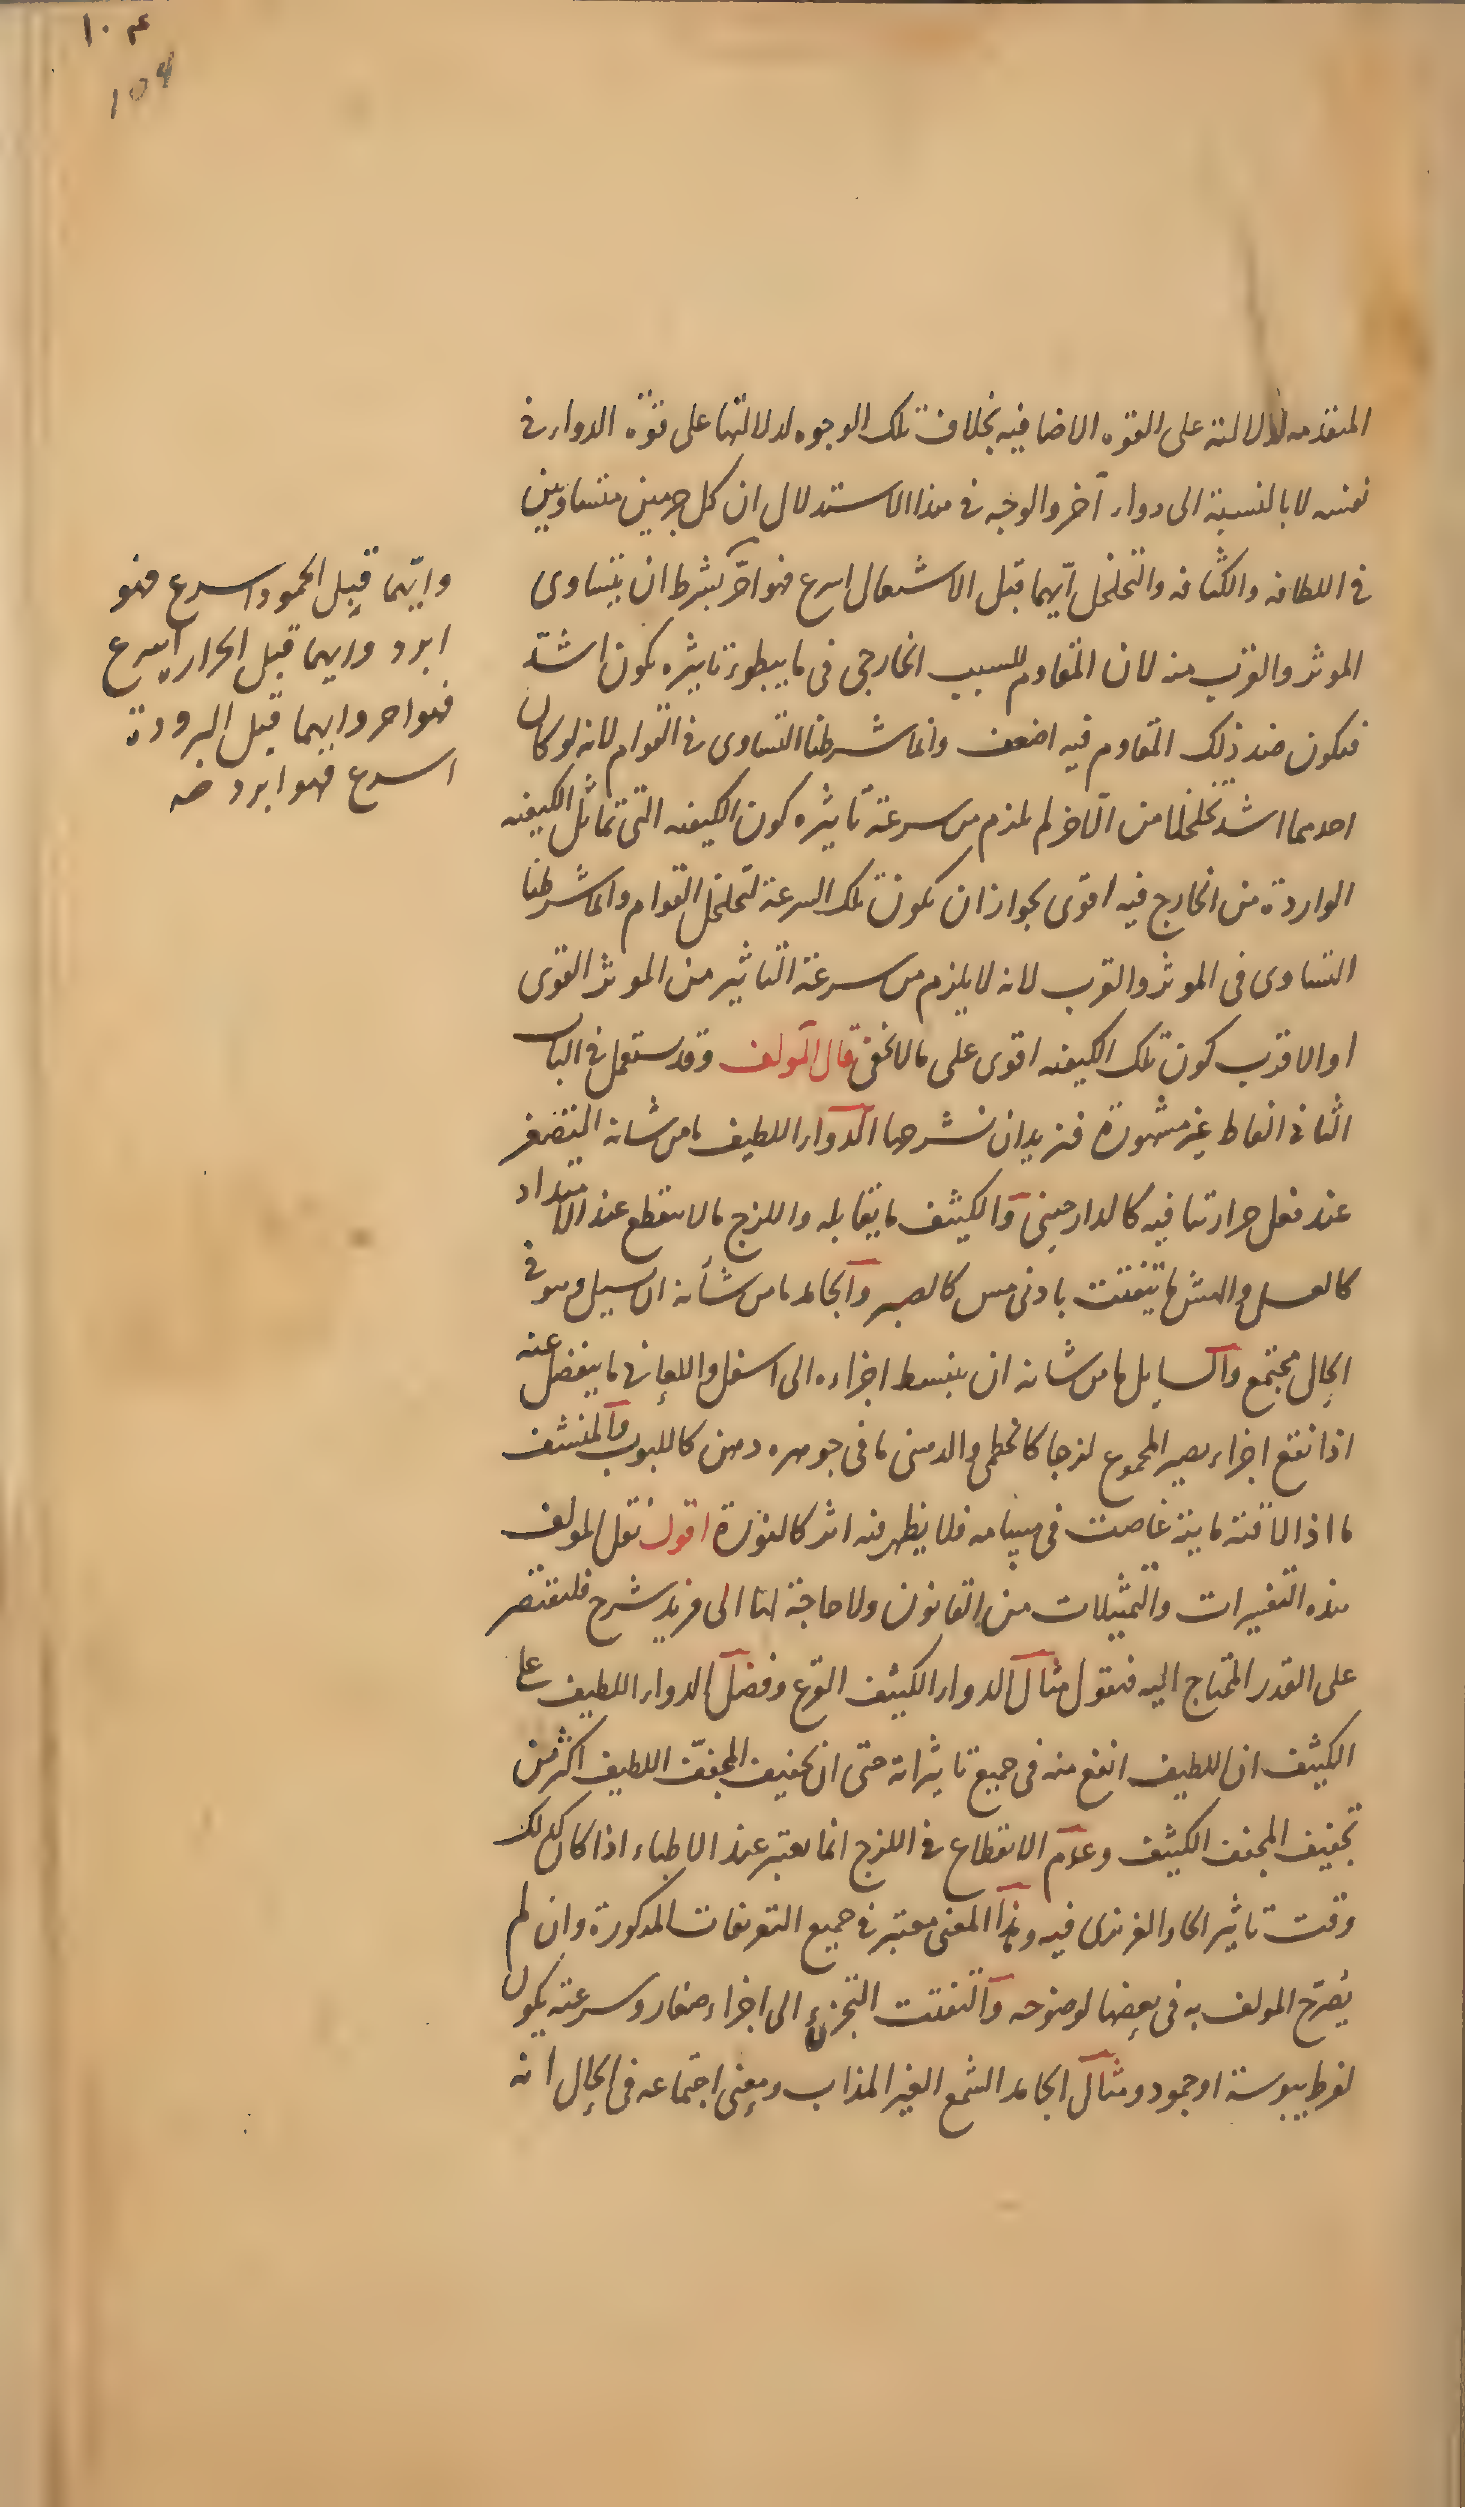 ١٠٤
104
المتقدمه لدلالته على القوه الاضافيه بخلاف تلك الوجوه لدلالتها على قوّة الدواء فى
نفسه لا بالنسبة الى دواء آخر والوجه فى هذا الاستدلال ان كل جرمين متساويين
فى اللطافه والكثافه والتخلخل ايّهما قبل الاشتعال اسرع فهو احرّ بشرط ان يتساوى
الموثر والقرب منه لان المقاوم للسبب الخارجى فى ما يبطوء تاثيره يكون اشدّ
فيكون ضد ذلك المقاوم فيه اضعف وانما شرطنا التساوى فى القوام لانه لو كان
احدهما اشد تخلخلا من الآخر لم يلزم من سرعة تأثيره كون الكيفيه التى تماثل الكيفيه
الواردة من الخارج فيه اقوى لجواز ان تكون تلك السرعة لتخلخل القوام وانما شرطنا
التساوى فى الموثر والقرب لانه لا يلزم من سرعة التاثير من الموثر القوى
او الاقرب كون تلك الكيفيه اقوى على ما لا يخفى قال المولف وقد ستعمل فى الباب
الثانى الفاظ غير مشهورة فنريد ان نشرحها الدواء اللطيف ما من شانه التصغر
عند فعل حرارتنا فيه كالدارصينى والكثيف ما يقابله واللزج ما لا ينقطع عند الامتداد
كالعسل والهش ما يتفتت بادنى مس كالصبر والجامد ما من شأنه ان يسيل وهو فى
الحال مجتمع والسايل ما من شانه ان ينبسط اجزاءه الى اسفل واللعابى ما ينفصل عنه
اذا نقع اجزاء يصير المجموع لزجا كالخطمى والدهنى ما فى جوهره دهن كاللبوب والمنشف
ما اذا لاقته مايية غاصت فى مسامه فلا يظهر منه اثر كالنورة اقول نقل المولف
هذه التفسيرات والتمثيلات من القانون ولا حاجة لنا الى مزيد شرح فلنقتصر
على القدر المحتاج اليه فنقول مثال الدواء الكثيف القرع وفضل الدواء اللطيف على
الكثيف ان اللطيف انفع منه فى جميع تاثيراته حتى ان تجفيف المجفف اللطيف اكثر من
تجفيف المجفف الكثيف وعدم الانقطاع فى اللزج انما يعتبر عند الاطباء اذا كان كذلك
وقت تاثير الحار الغريزى فيه وهذا المعنى معتبر فى جميع التعريفات المذكورة وان لم
يصرّح المولف به فى بعضها لوضوحه والتفتت التجزى الى اجزاء صغار وسرعته يكون
لفرط يبوسة او جمود ومثال الجامد الشمع الغير المذاب ومعنى اجتماعه فى الحال انه
وايّهما قبل الجمود اسرع فهو
ابرد وايهما قبل الحراره اسرع
فهو احر وايهما قبل البرودة
اسرع فهو ابرد صه